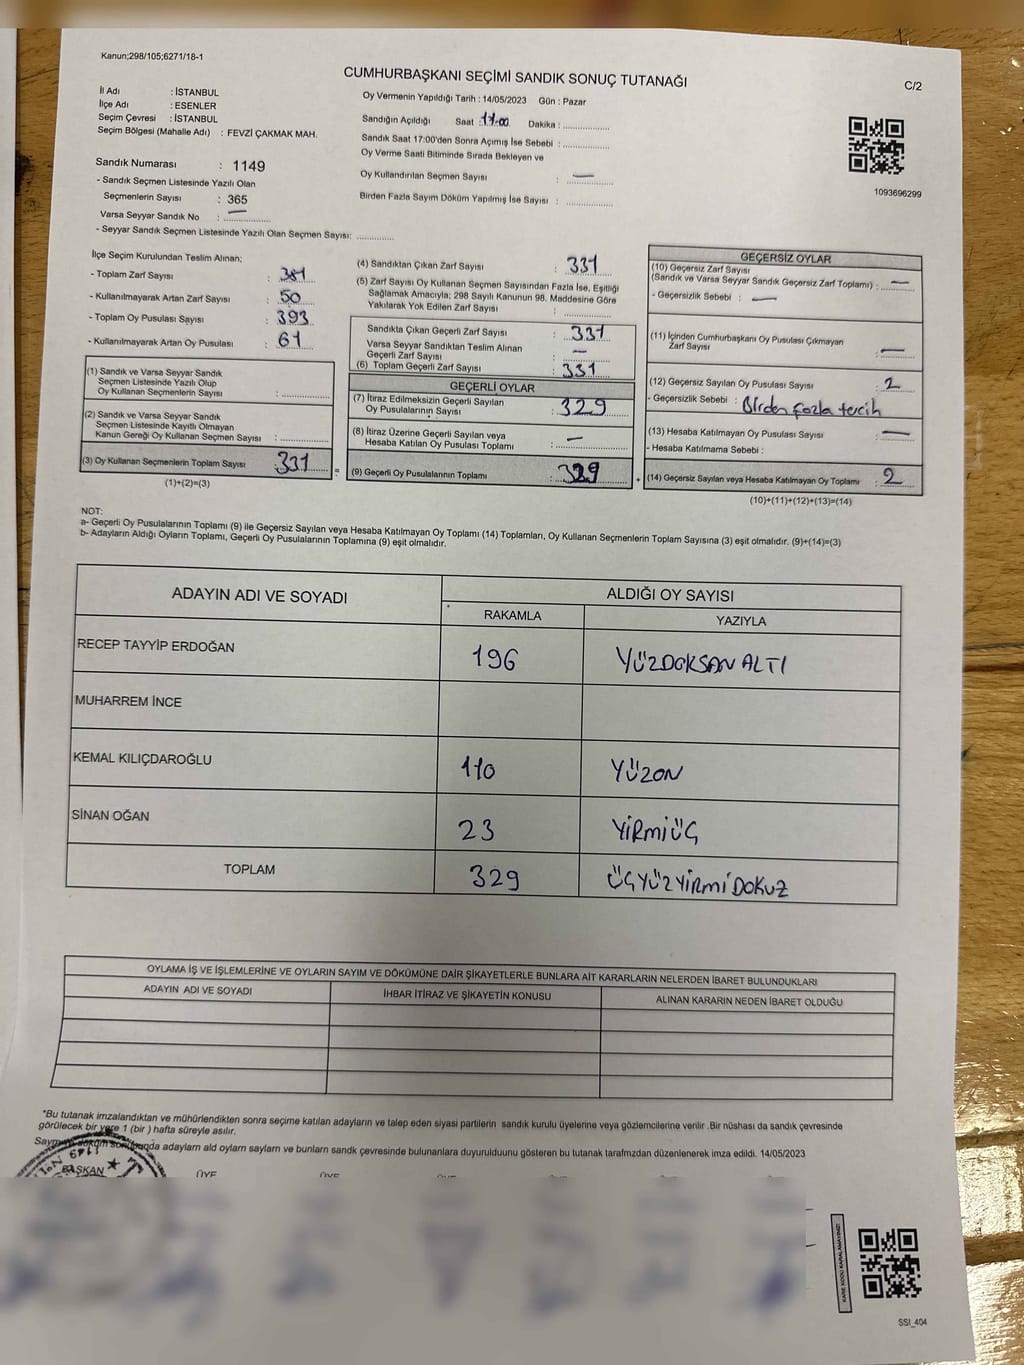 Kanun;298/105;6271/18-1
CUMHURBAŞKANI SEÇİMİ SANDIK SONUÇ TUTANAĞI
C/2
İl Adı : İSTANBUL
İlçe Adı : ESENLER
Seçim Çevresi : İSTANBUL
Seçim Bölgesi (Mahalle Adı) : FEVZİ ÇAKMAK MAH.
Sandık Numarası : 1149
- Sandık Seçmen Listesinde Yazılı Olan
Seçmenlerin Sayısı : 365
Varsa Seyyar Sandık No : —
- Seyyar Sandık Seçmen Listesinde Yazılı Olan Seçmen Sayısı: ............
Oy Vermenin Yapıldığı Tarih : 14/05/2023 Gün : Pazar
Sandığın Açıldığı Saat : 17.00 Dakika : ............
Sandık Saat 17:00'den Sonra Açımış İse Sebebi : ............
Oy Verme Saati Bitiminde Sırada Bekleyen ve
Oy Kullandırılan Seçmen Sayısı : —
Birden Fazla Sayım Döküm Yapılmış İse Sayısı : ............
1093696299
İlçe Seçim Kurulundan Teslim Alınan;
- Toplam Zarf Sayısı : 381
- Kullanılmayarak Artan Zarf Sayısı : 50
- Toplam Oy Pusulası Sayısı : 393
- Kullanılmayarak Artan Oy Pusulası : 61
(1) Sandık ve Varsa Seyyar Sandık
Seçmen Listesinde Yazılı Olup
Oy Kullanan Seçmenlerin Sayısı : ............
(2) Sandık ve Varsa Seyyar Sandık
Seçmen Listesinde Kayıtlı Olmayan
Kanun Gereği Oy Kullanan Seçmen Sayısı : ............
(3) Oy Kullanan Seçmenlerin Toplam Sayısı : 331
(1)+(2)=(3)
(4) Sandıktan Çıkan Zarf Sayısı : 331
(5) Zarf Sayısı Oy Kullanan Seçmen Sayısından Fazla İse, Eşitliği
Sağlamak Amacıyla; 298 Sayılı Kanunun 98. Maddesine Göre
Yakılarak Yok Edilen Zarf Sayısı : ............
Sandıkta Çıkan Geçerli Zarf Sayısı : 331
Varsa Seyyar Sandıktan Teslim Alınan
Geçerli Zarf Sayısı : —
(6) Toplam Geçerli Zarf Sayısı : 331
GEÇERLİ OYLAR
(7) İtiraz Edilmeksizin Geçerli Sayılan
Oy Pusulalarının Sayısı : 329
(8) İtiraz Üzerine Geçerli Sayılan veya
Hesaba Katılan Oy Pusulası Toplamı : —
(9) Geçerli Oy Pusulalarının Toplamı : 329
GEÇERSİZ OYLAR
(10) Geçersiz Zarf Sayısı
(Sandık ve Varsa Seyyar Sandık Geçersiz Zarf Toplamı) : —
- Geçersizlik Sebebi : —
(11) İçinden Cumhurbaşkanı Oy Pusulası Çıkmayan
Zarf Sayısı : —
(12) Geçersiz Sayılan Oy Pusulası Sayısı : 2
- Geçersizlik Sebebi : Birden fazla tercih
(13) Hesaba Katılmayan Oy Pusulası Sayısı : —
- Hesaba Katılmama Sebebi :
(14) Geçersiz Sayılan veya Hesaba Katılmayan Oy Toplamı : 2
(10)+(11)+(12)+(13)=(14)
NOT:
a- Geçerli Oy Pusulalarının Toplamı (9) ile Geçersiz Sayılan veya Hesaba Katılmayan Oy Toplamı (14) Toplamları, Oy Kullanan Seçmenlerin Toplam Sayısına (3) eşit olmalıdır. (9)+(14)=(3)
b- Adayların Aldığı Oyların Toplamı, Geçerli Oy Pusulalarının Toplamına (9) eşit olmalıdır.
ADAYIN ADI VE SOYADI
ALDIĞI OY SAYISI
RAKAMLA YAZIYLA
RECEP TAYYİP ERDOĞAN 196 YÜZDOKSAN ALTI
MUHARREM İNCE
KEMAL KILIÇDAROĞLU 110 YÜZON
SİNAN OĞAN 23 YİRMİÜÇ
TOPLAM 329 ÜÇYÜZYİRMİDOKUZ
OYLAMA İŞ VE İŞLEMLERİNE VE OYLARIN SAYIM VE DÖKÜMÜNE DAİR ŞİKAYETLERLE BUNLARA AİT KARARLARIN NELERDEN İBARET BULUNDUKLARI
ADAYIN ADI VE SOYADI İHBAR İTİRAZ VE ŞİKAYETİN KONUSU ALINAN KARARIN NEDEN İBARET OLDUĞU
*Bu tutanak imzalandıktan ve mühürlendikten sonra seçime katılan adayların ve talep eden siyasi partilerin sandık kurulu üyelerine veya gözlemcilerine verilir .Bir nüshası da sandık çevresinde
görülecek bir yere 1 (bir ) hafta süreyle asılır.
adayların ald oyların sayların ve bunların sandk çevresinde bulunanlara duyurulduunu gösteren bu tutanak tarafmzdan düzenlenerek imza edildi. 14/05/2023
BAŞKAN ÜYE ÜYE
1149
SSI_404